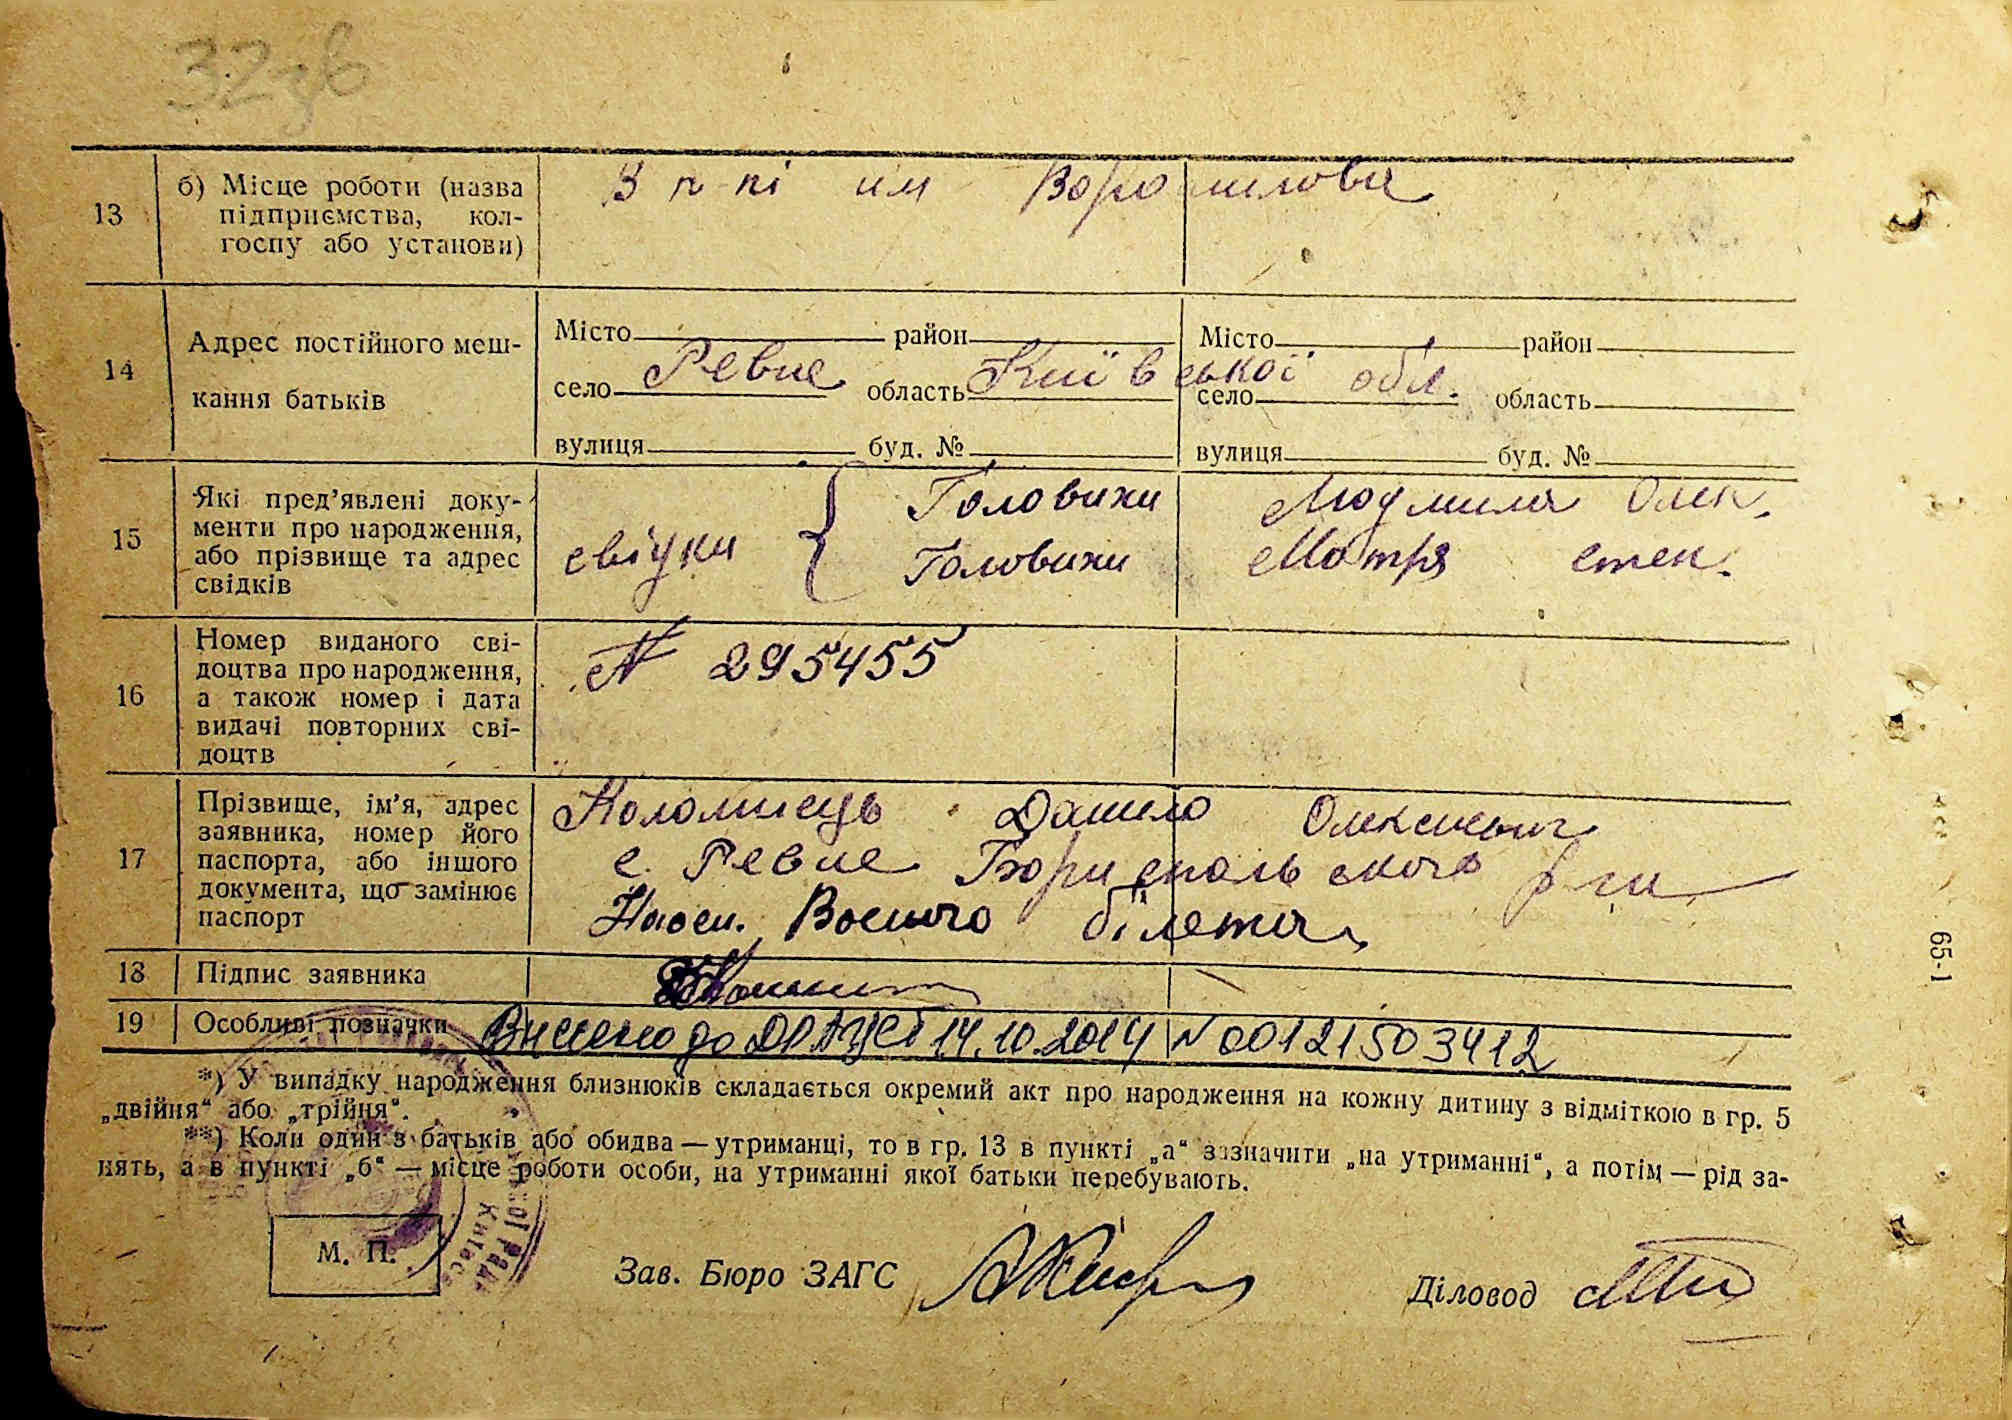 32 зв
13 б) Місце роботи (назва
підприємства, кол-
госпу або установи)
В к-пі им Ворошилова
14 Адрес постійного меш-
кання батьків
Місто район Місто район
село Ревне область Київської обл. село область
вулиця буд. № вулиця буд. №
15 Які пред’явлені доку-
менти про народження,
або прізвище та адрес
свідків
свідки { Головихи Людмила Олек.
Головихи Мотря степ.
16 Номер виданого сві-
доцтва про народження,
а також номер і дата
видачі повторних сві-
доцтв
N 295455
17 Прізвище, ім’я, адрес
заявника, номер його
паспорта, або іншого
документа, що замінює
паспорт
Коломиець Данило Олексієвич
с. Ревне Бориспольського р-ну
Воєного білета
18 Підпис заявника
19 Особливі позначки Внесено до ДРАЦСг 14.10.2014 N 00121503412
*) У випадку народження близнюків складається окремий акт про народження на кожну дитину з відміткою в гр. 5
„двійня“ або „трійня“.
**) Коли один з батьків або обидва — утриманці, то в гр. 13 в пункті „а“ зазначити „на утриманні“, а потім — рід за-
нять, а в пункті „б“ — місце роботи особи, на утриманні якої батьки перебувають.
М. П.
Зав. Бюро ЗАГС
Діловод
65-1